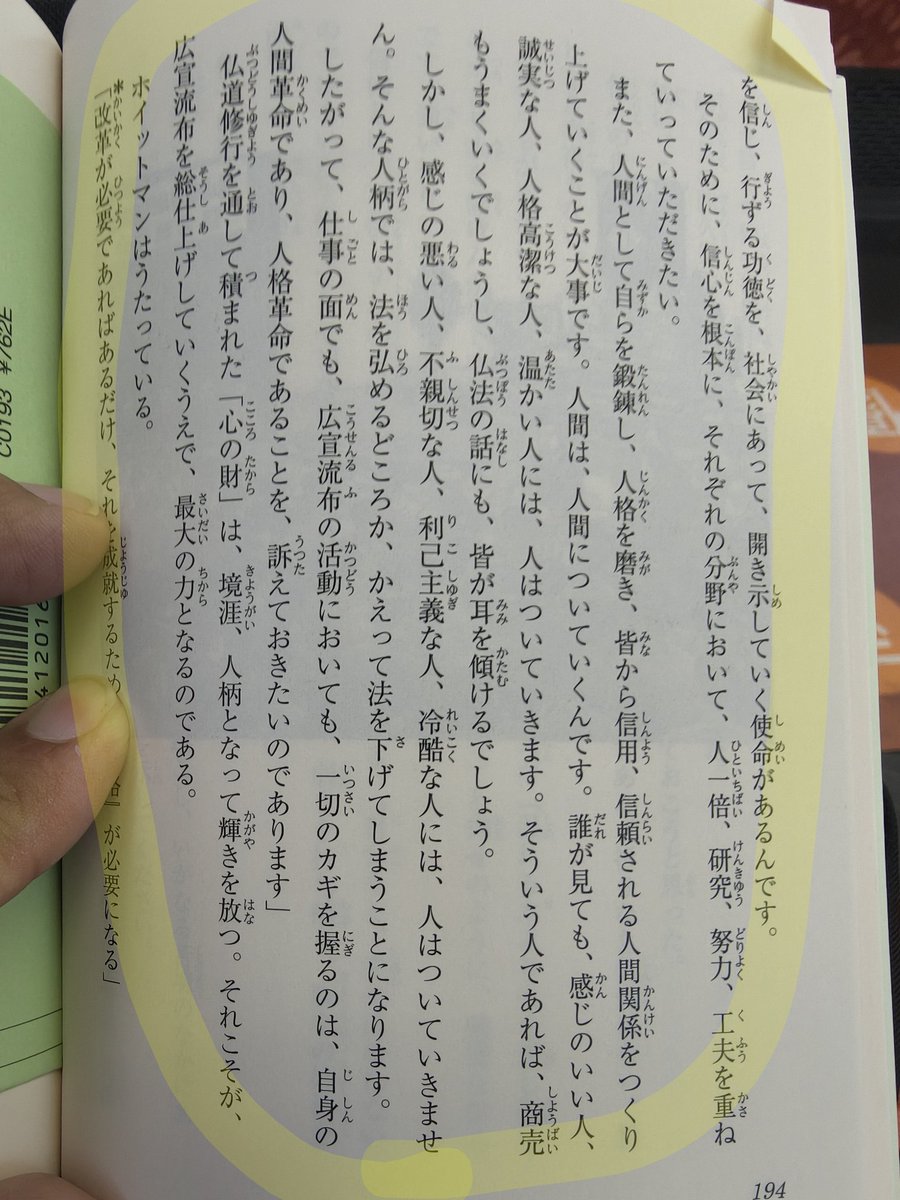 を信じ、行ずる功徳を、社会にあって、開き示していく使命があるんです。
そのために、信心を根本に、それぞれの分野において、人一倍、研究、努力、工夫を重ね
ていっていただきたい。
また、人間として自らを鍛錬し、人格を磨き、皆から信用、信頼される人間関係をつくり
上げていくことが大事です。人間は、人間についていくんです。誰が見ても、感じのいい人、
誠実な人、人格高潔な人、温かい人には、人はついていきます。そういう人であれば、商売
もうまくいくでしょうし、仏法の話にも、皆が耳を傾けるでしょう。
しかし、感じの悪い人、不親切な人、利己主義な人、冷酷な人には、人はついていきませ
ん。そんな人柄では、法を弘めるどころか、かえって法を下げてしまうことになります。
したがって、仕事の面でも、広宣流布の活動においても、一切のカギを握るのは、自身の
人間革命であり、人格革命であることを、訴えておきたいのであります」
仏道修行を通して積まれた「心の財」は、境涯、人柄となって輝きを放つ。それこそが、
広宣流布を総仕上げしていくうえで、最大の力となるのである。
ホイットマンはうたっている。
*「改革が必要であればあるだけ、それを成就するため』が必要になる」
194
C0193 ¥762E